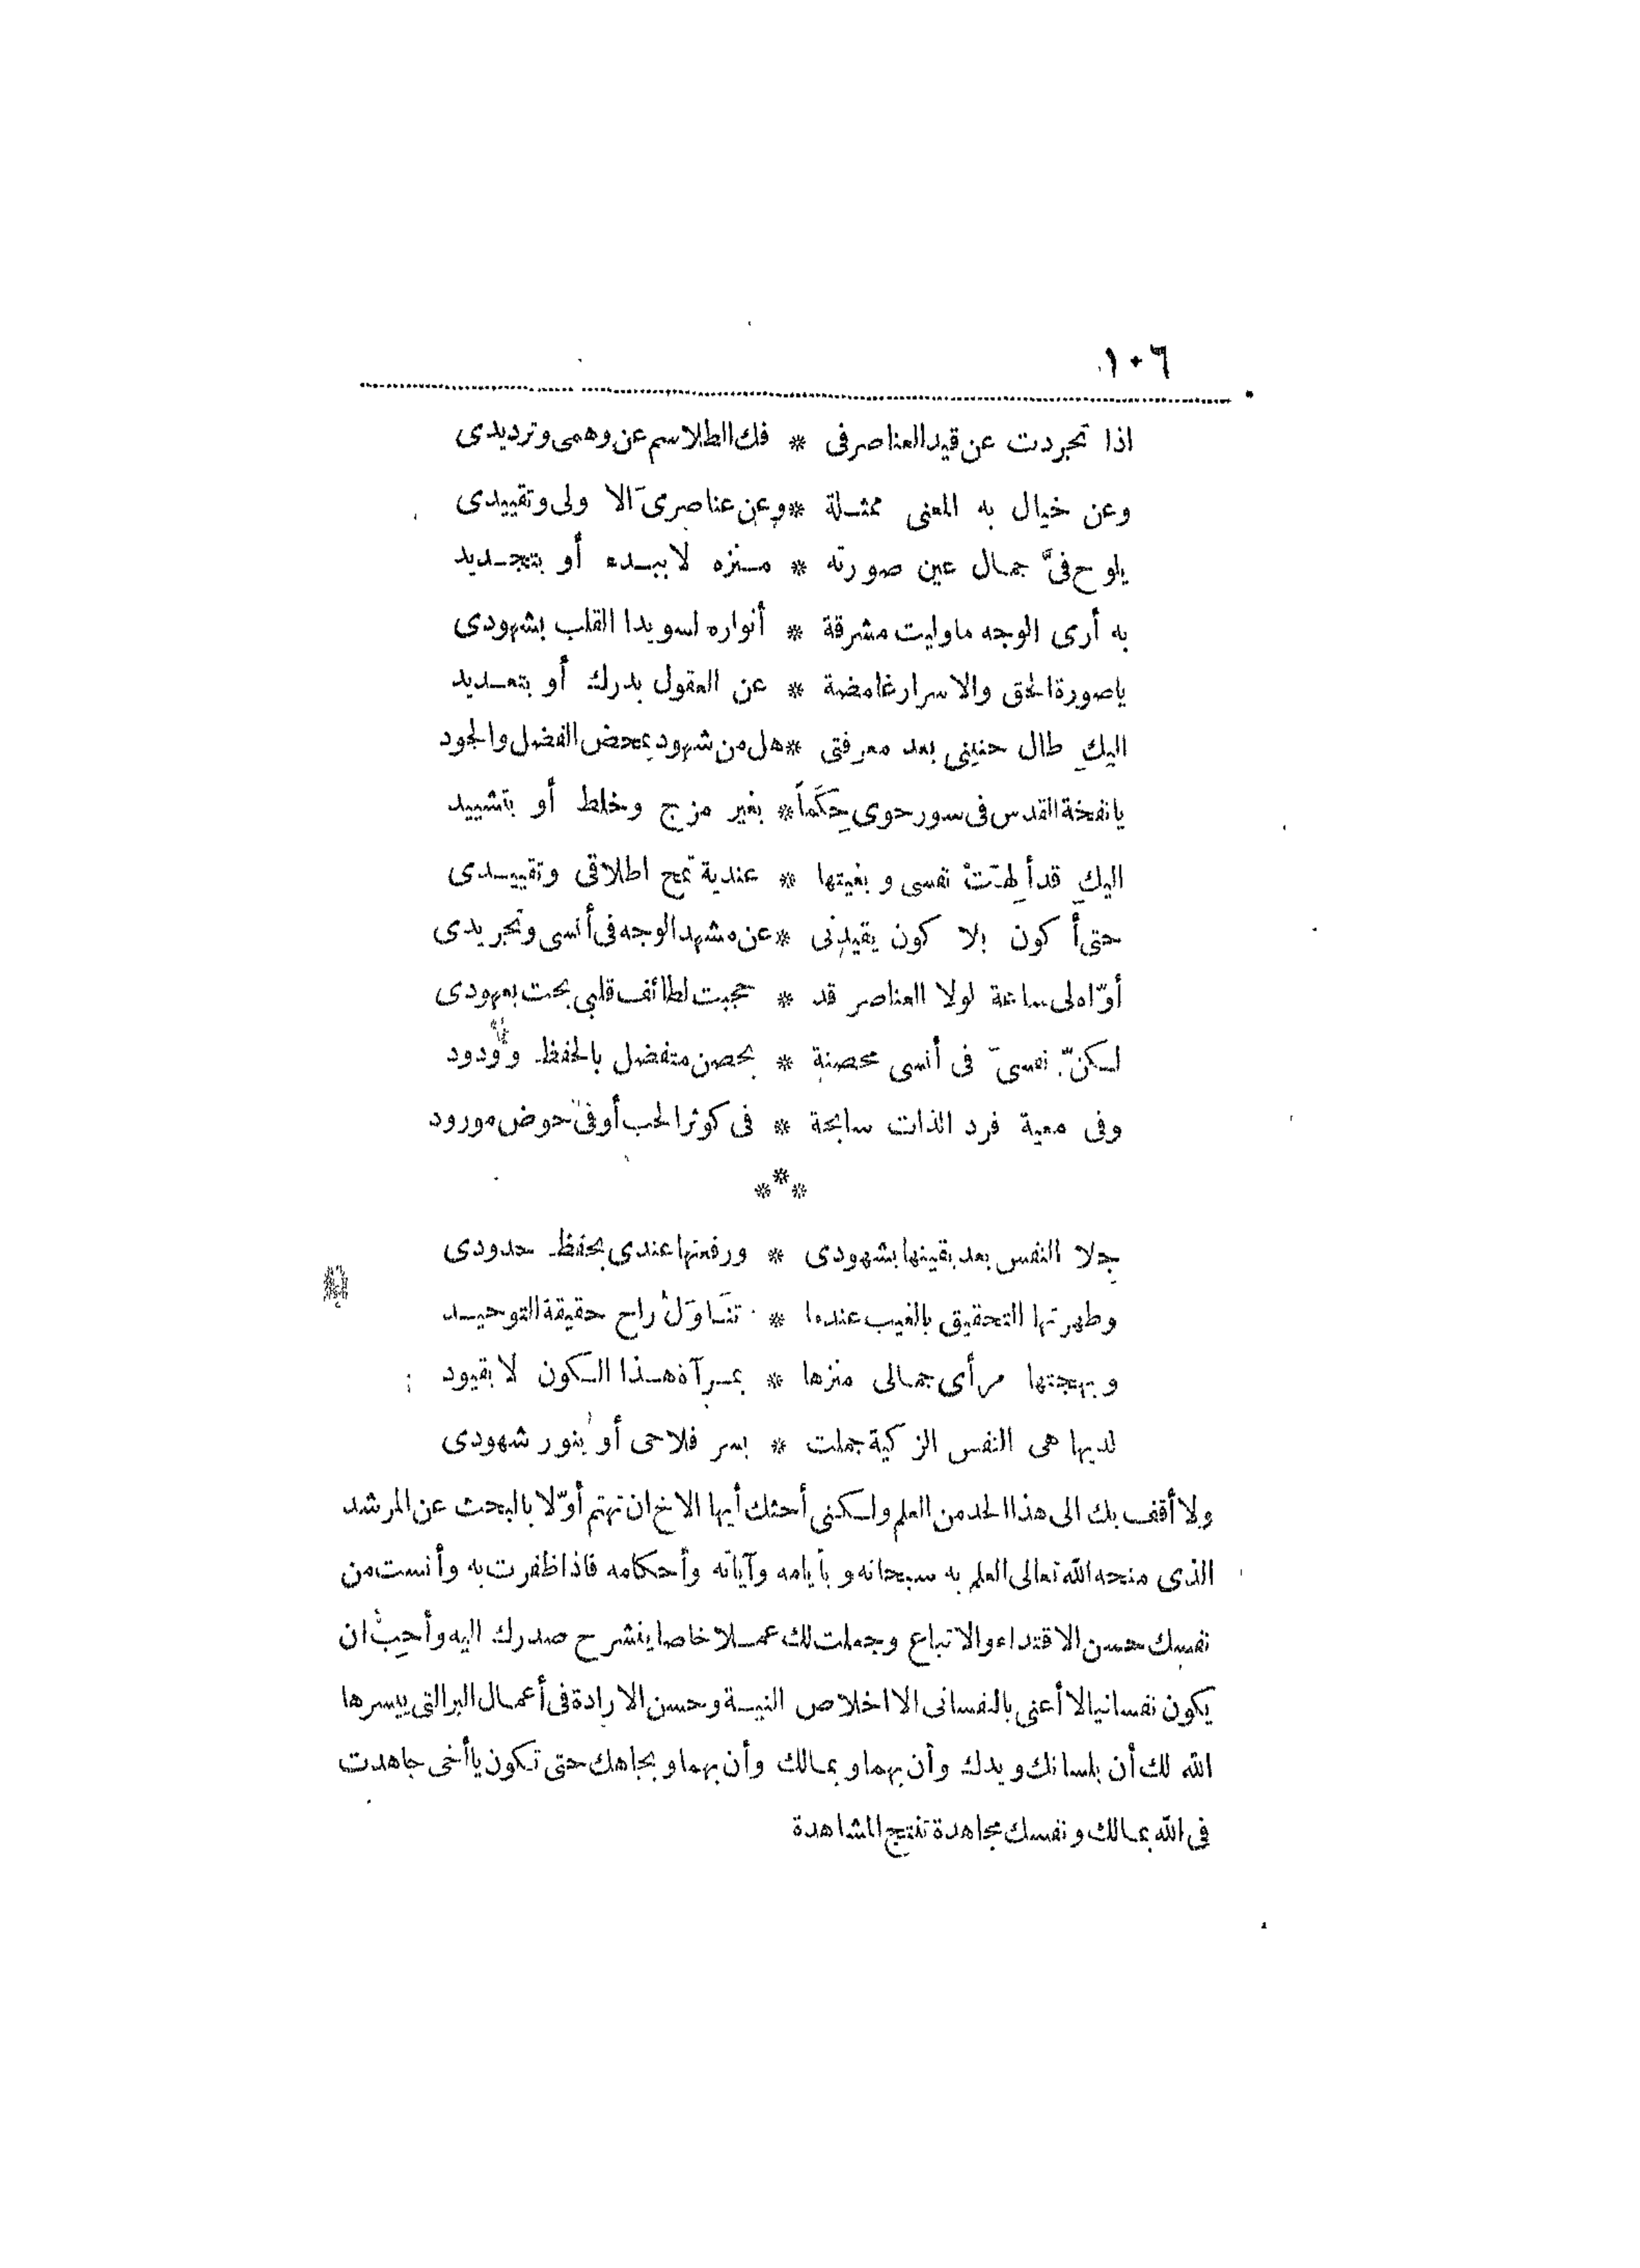 ١٠٦
اذا تجردت عن قيد العناصر فى * فك الطلاسم عن وهمى وترديدى
وعن خيال به المعنى ممثلة * وعن عناصرى الاولى وتقييدى
يلوح فىَّ جمال عين صورته * منزه لا ببدء أو بتجديد
به أرى الوجه ماوليت مشرقة * أنواره لسويدا القلب بشهودى
ياصورة الحق والاسرار غامضة * عن العقول بدرك أو بتعديد
اليكِ طال حنينى بعد معرفتى * هل من شهود بمحض الفضل والجود
يانفخة القدس فى سور حوى حِكَماً * بغير مزج وخلط أو بتشييد
اليكِ قد أَلِهَتْ نفسى وبغيتها * عندية تمح اطلاقى وتقييدى
حتى أكون بلا كون يقيدنى * عن مشهد الوجه فى أنسى وتجريدى
أوّاه لى ساعة لولا العناصر قد * حجبت لطائف قلبى بحت بعهودى
لكنّ نفسىَ فى أنسى محصنة * بحصن متفضل بالحفظ وودود
وفى معية فرد الذات سابحة * فى كوثر الحب أو فى حوض مورود
***
جِلا النفس بعد يقينها بشهودى * ورفعتها عندى بحفظ حدودى
وطهرتها التحقيق بالغيب عندما * تنَاوَلُ راح حقيقة التوحيد
وبهجتها مرأى جمالى منزها * بمرآة هذا الكون لا بقيود
لديها هى النفس الزكية جملت * بسر فلاحى أو بنور شهودى
ولا أقف بك الى هذا الحد من العلم ولكنى أحثك أيها الاخ ان تهتم أوّلا بالبحث عن المرشد
الذى منحه الله تعالى العلم به سبحانه وبأيامه وآياته وأحكامه فاذا ظفرت به وأنست من
نفسك حسن الاقتداء والاتباع وجملت لك عملا خاصا ينشرح صدرك اليه وأحِبُّ ان
يكون نفسانيا لا أعنى بالنفسانى الا اخلاص النية وحسن الارادة فى أعمال البر التى ييسرها
الله لك أن بلسانك ويدك وأن بهما وبمالك وأن بهما وبجاهك حتى تكون ياأخى جاهدت
فى الله بمالك ونفسك مجاهدة تنتج المشاهدة